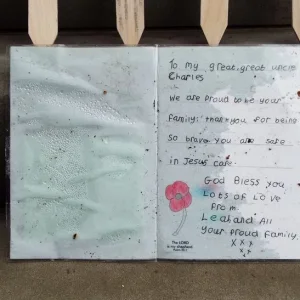 To my great, great uncle
Charles
We are Proud to be your
family. thank you for being
So brave you are safe
in Jesus care.
God Bless you
Lots of Love
From
Leah and All
your Proud Family.
x x x
x
The LORD
is my shepherd